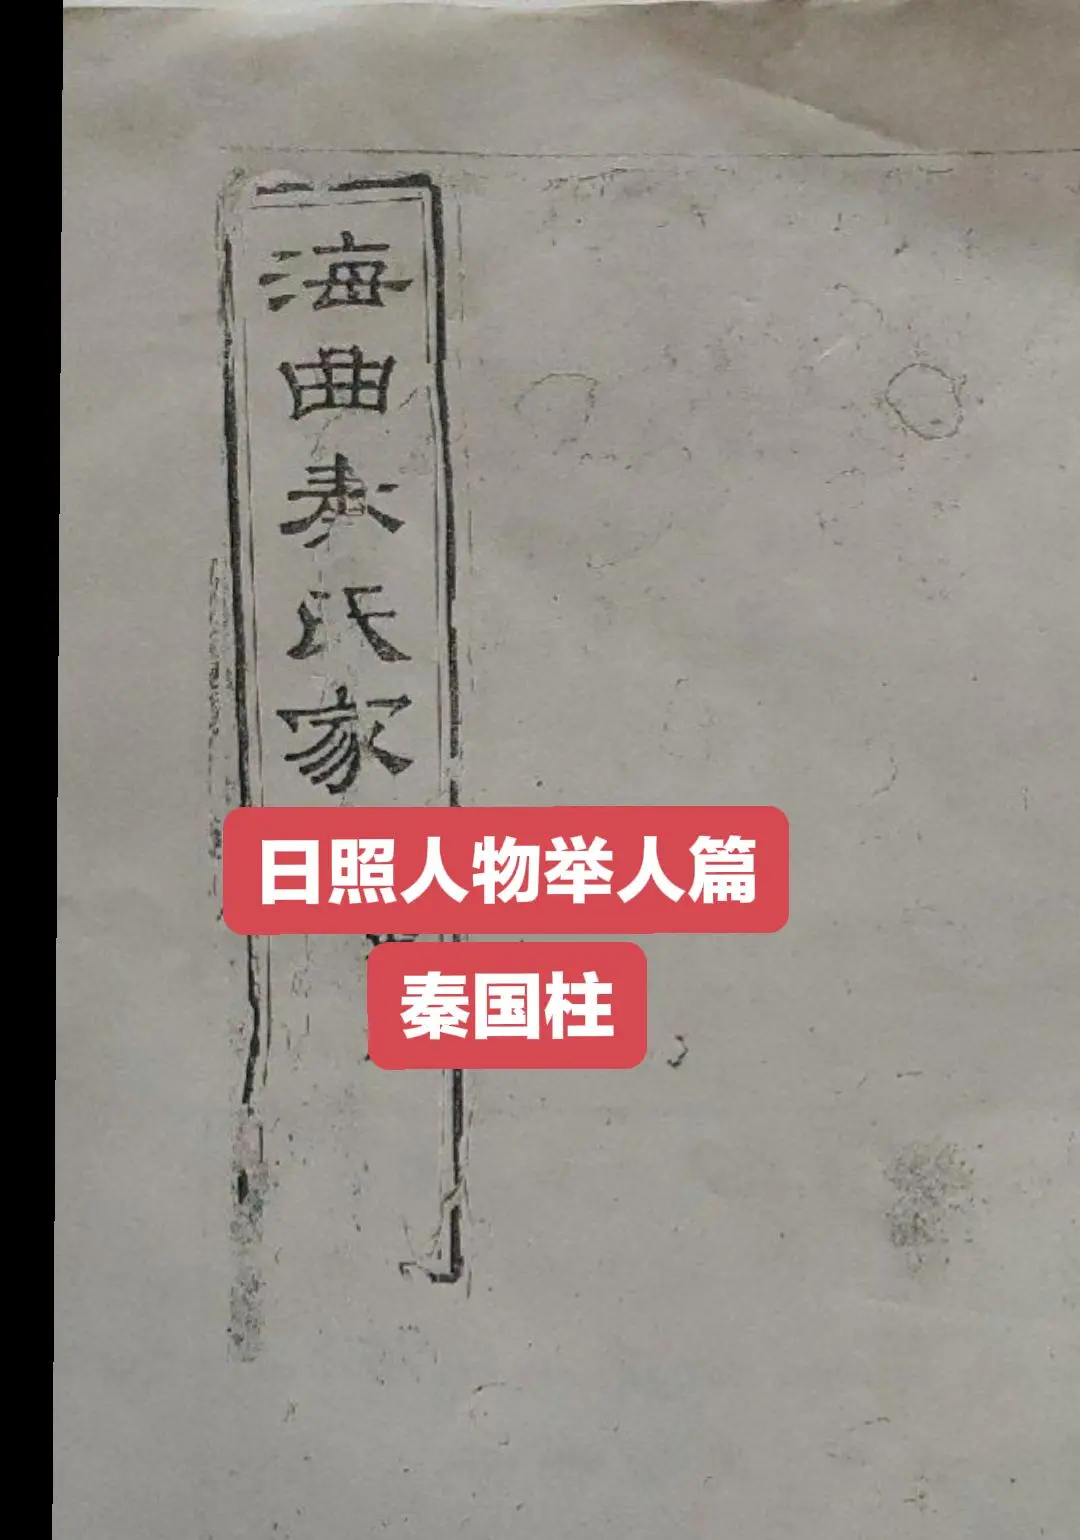 海曲秦氏家
日照人物举人篇
秦国柱